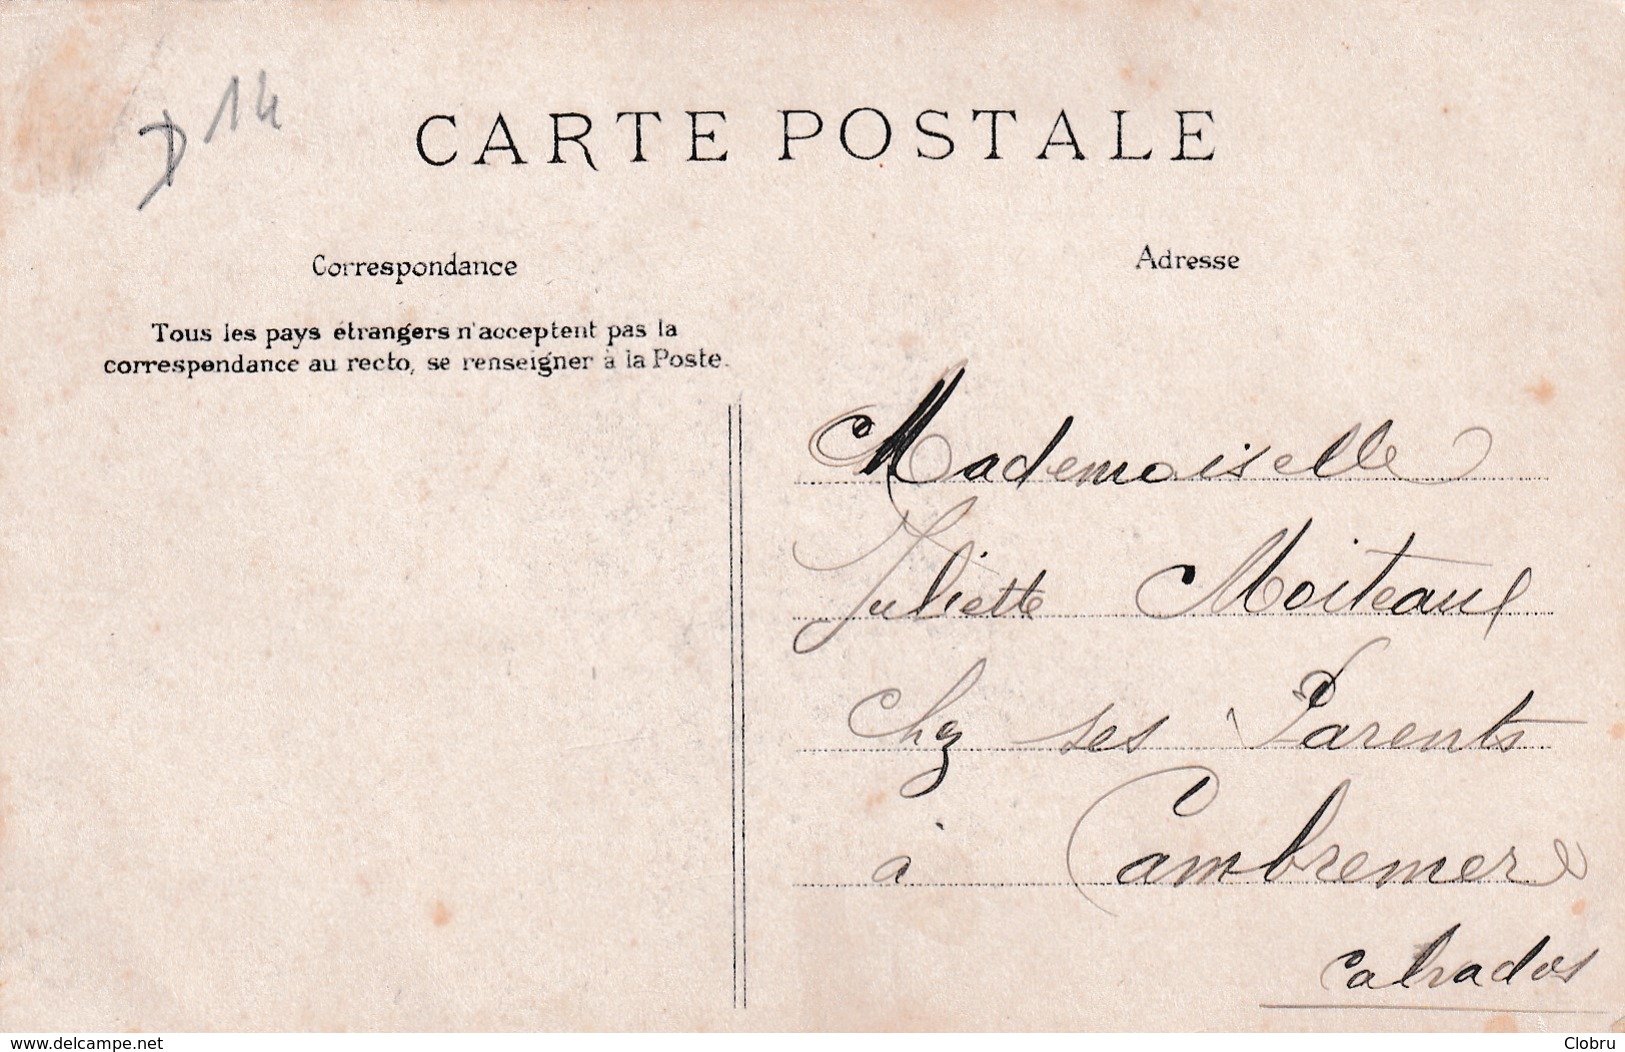 D 14
CARTE POSTALE
Correspondance
Adresse
Tous les pays étrangers n'acceptent pas la
correspondance au recto, se renseigner à la Poste.
Mademoiselle
Juliette Moiteaux
Chez ses Parents
à Cambremer
Calvados
www.delcampe.net
Clobru